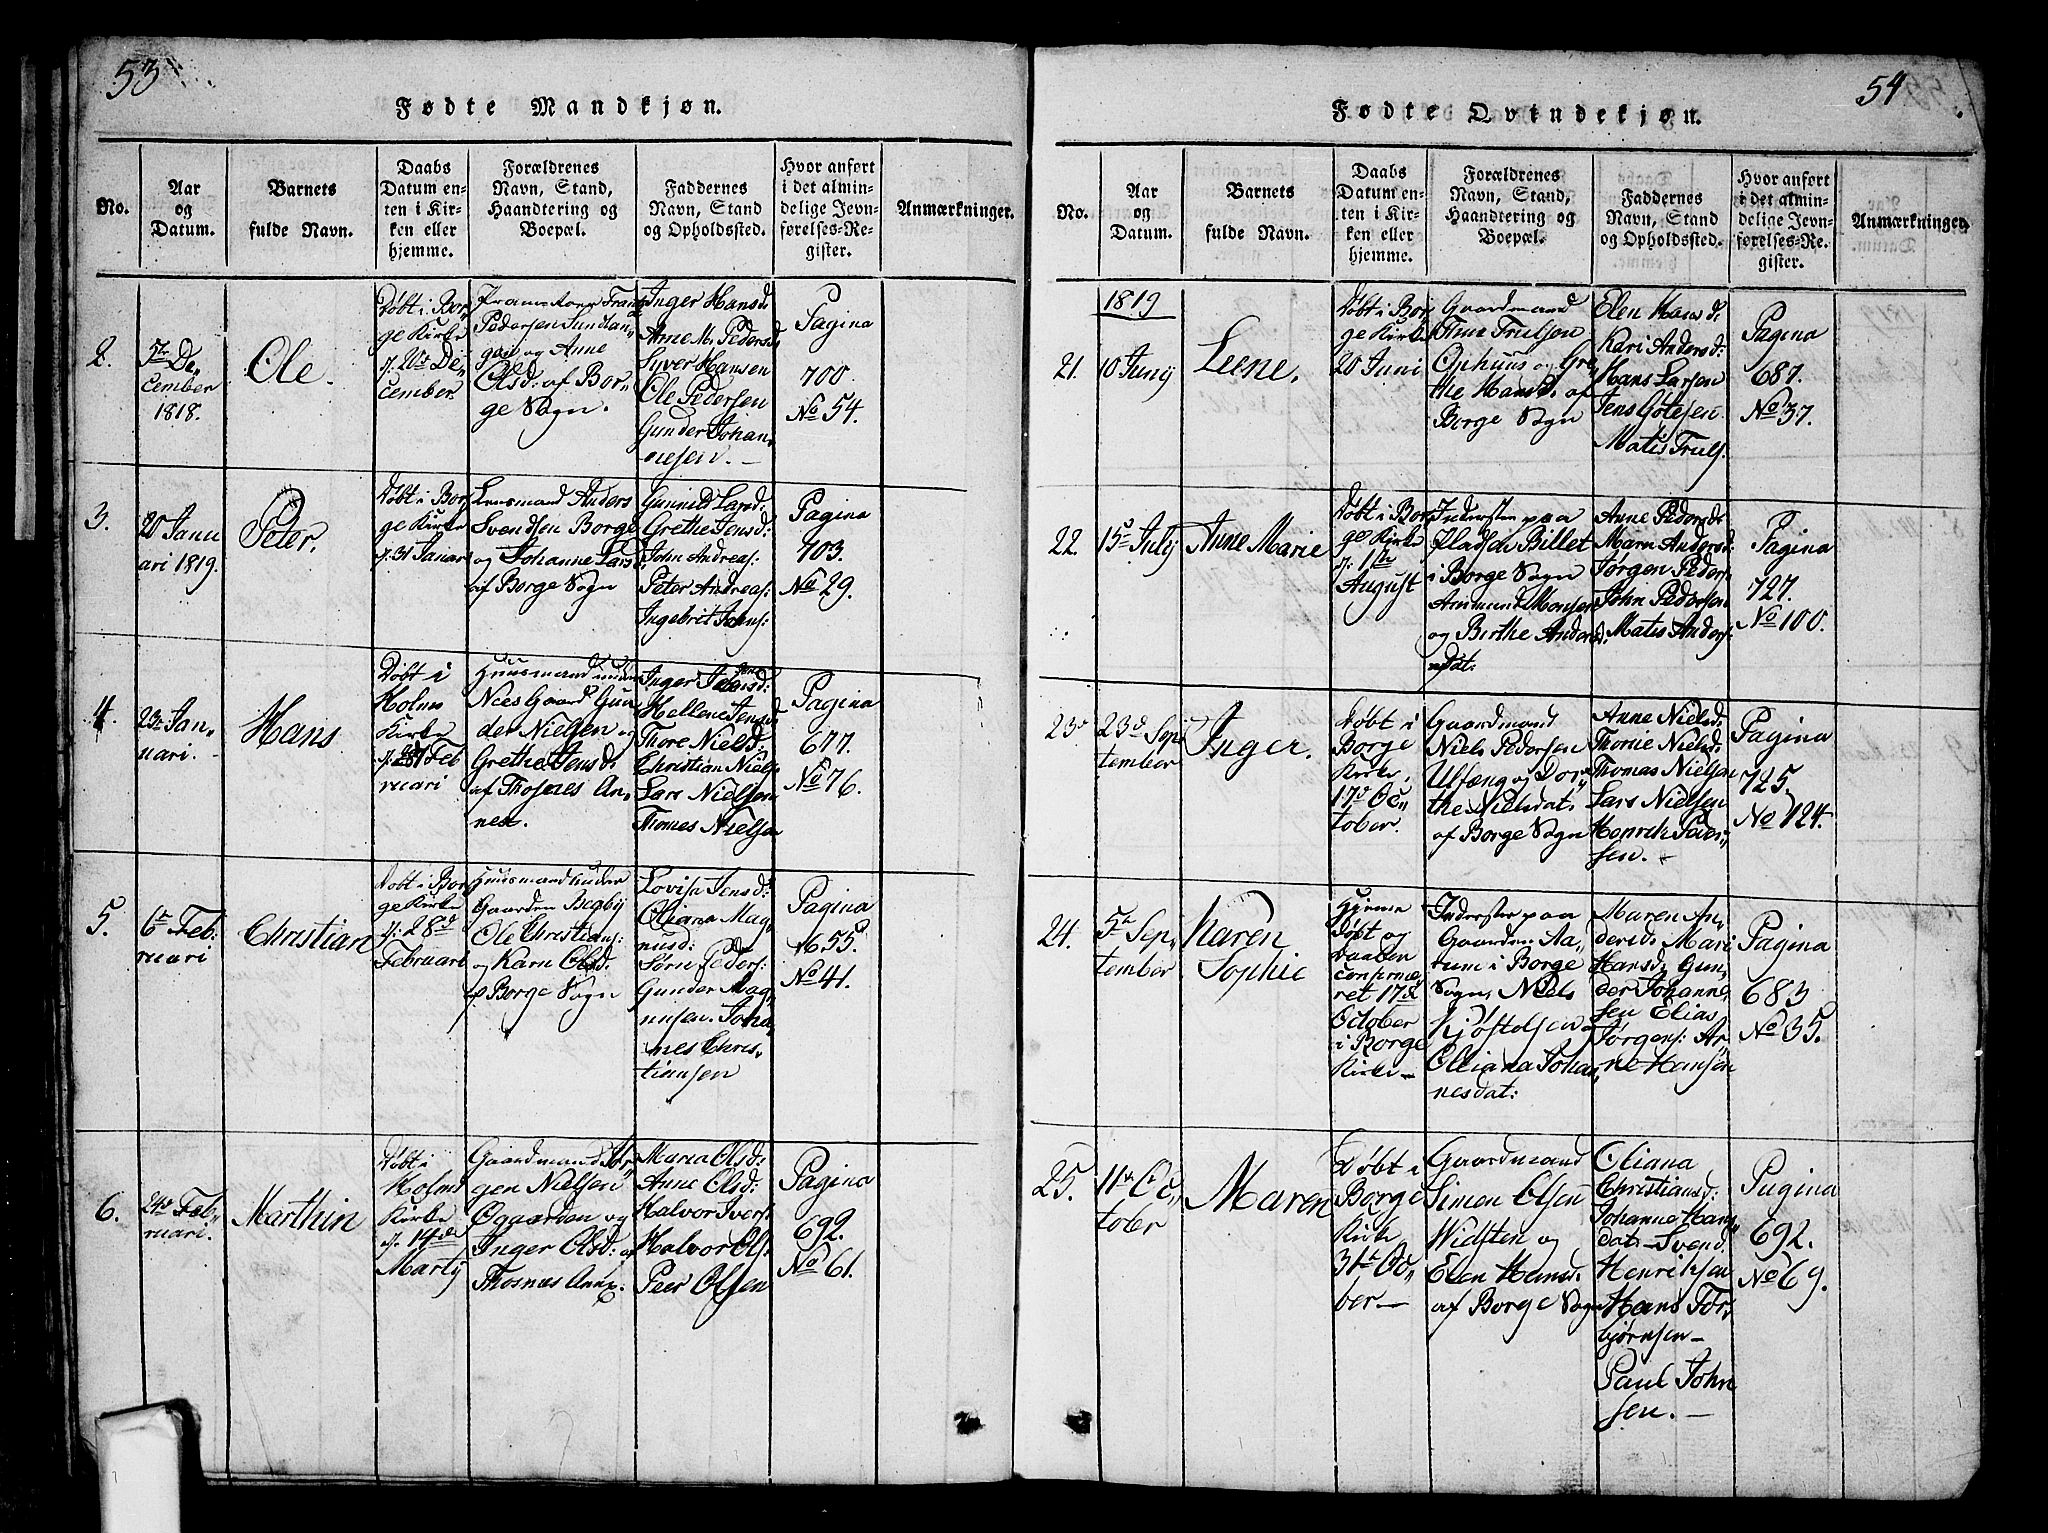 53
Fødte Mandkjøn.
No.
Aar
og
Datum.
Barnets
fulde Navn.
Daabs
Datum en-
ten i Kir-
ken eller
hjemme.
Forældrenes
Navn, Stand,
Haandtering og
Boepæl.
Faddernes
Navn, Stand
og Opholdssted.
Hvor anført
i det almin-
delige Jevn-
førelses-Re-
gister.
Anmærkninger.
2.
5te De-
cember
1818.
Ole.
Døbt i Bor
ge Kirke
d: 20de De-
cember
Pedersen Sundhau
gen og Anne
Olsd: af Bor-
ge Sogn.
Inger Hansd:
Anne M. Pedersd:
Syver Hansen
Ole Pedersen
Gunder Johan-
nesen.
Pagina
700.
No 54.
3.
20 Janu
ari 1819.
Peter.
Døbt i Bor
ge Kirke
d: 31 Januar
Lensmand Anders
Svendsen Borge
og Johanne Larsd
af Borge Sogn
Gunnild Larsd:
Grethe Jensd:
John Andreas:
Peter Andreas:
Ingebrit Johns:
Pagina
703.
No 29.
4.
23de Jan-
uari.
Hans
Døbt i
Holms
Kirke
d: 28 Feb
ruari
Huusmand under
Nees Gaard Gun
der Nielsen og
Grethe Jensd:
af Thosnes An-
nex.
Inger Jensd:
Hellene Jensd
Thore Nielsd:
Christian Niels
Lars Nielsen
Thomes Nielsen
Pagina
677.
No 76.
5.
6te Feb:
ruari
Christian
Døbt i Bor
ge Kirke
d: 28de
Februari
Huusmand under
Gaarden Begby
Ole Christians:
og Karn Olsd.
af Borge Sogn
Lovisa Jensd:
Oliana Mag
nusd:
Sørn Peders:
Gunder Mag
nusen. Joha
nes Chris-
tiansen
Pagina
655.
No 41.
6.
24de Feb-
ruari.
Marthin
Døbt i
Holms
Kirke
d: 14de
Martij
Gaardmand Jør
gen Nielsen
Øgaarden og
Inger Olsd: af
Thosnæs Annx.
Maria Olsd:
Anne Olsd:
Halvor Ivers
Halvor Ols:
Peer Olsen
Pagina
692.
No 61.
54
Fødte Qvindekjøn.
No.
Aar
og
Datum.
Barnets
fulde Navn.
Daabs
Datum en-
ten i Kir-
ken eller
hjemme.
Forældrenes
Navn, Stand,
Haandtering og
Boepæl.
Faddernes
Navn, Stand
og Opholdssted.
Hvor anført
i det almin-
delige Jevn-
førelses-Re-
gister.
Anmærkninger.
1819
21.
10 Junij
Leene.
Døbt i Bor
ge Kirke
20 Juni
Gaardmand
Trulsen
Ophuus og Gre
the Hansd. af
Borge Sogn
Elen Hansd:
Kari Andersd:
Hans Larsen
Jens Götesen.
Matis Truls.
Pagina
687.
No 37.
22.
15de July
Anne Marie
Døbt i Bor
ge Kirke
d: 1ste
August
Inderster paa
Pladsen Billet
i Borge Sogn
Ammund Monsen
og Birthe Anders
dat:
Anne Pedersd:
Marn Andersd:
Jørgen Peders
John Pedersen
Matis Anders:
Pagina
727.
No 100.
23.
23d Sep
tember
Inger.
Døbt i
Borge
Kirke.
17d Oc-
tober.
Gaardmand
Niels Pedersen
Ulfæng og Dor-
the Nielsdat:
af Borge Sogn
Anne Nielsd:
Thorie Nielsd.
Thomas Nielsen
Lars Nielsen
Henrich Peder-
sen.
Pagina
725.
No 124.
24.
5te Sep-
tember
Karen
Sophie
Hjemme
døbt og
Daaben
confirme
ret 17de
October
i Borge
Kirke
Inderster paa
Gaarden Aa-
tum i Borge
Sogn, Niels
Kjøstelsen og
Oliana Johan
nesdat:
Maren An
dersd: Mari
Hansd, Gun-
der Johanne
sen Elias
Jørgens: Ar-
ne Hansen
Pagina
683
No 35.
25.
11te Oc-
tober
Maren
Døbt i
Borge
Kirke
31te Oc-
ber
Gaardmand
Simon Olsen
Widsten og
Elen Hansd.
af Borge Sogn
Oliana
Christiansd:
Johanne Hans
dat Svend
Henriksen
Hans Tor-
bjørnsen
Paul John
sen.
Pagina
692.
No 69.